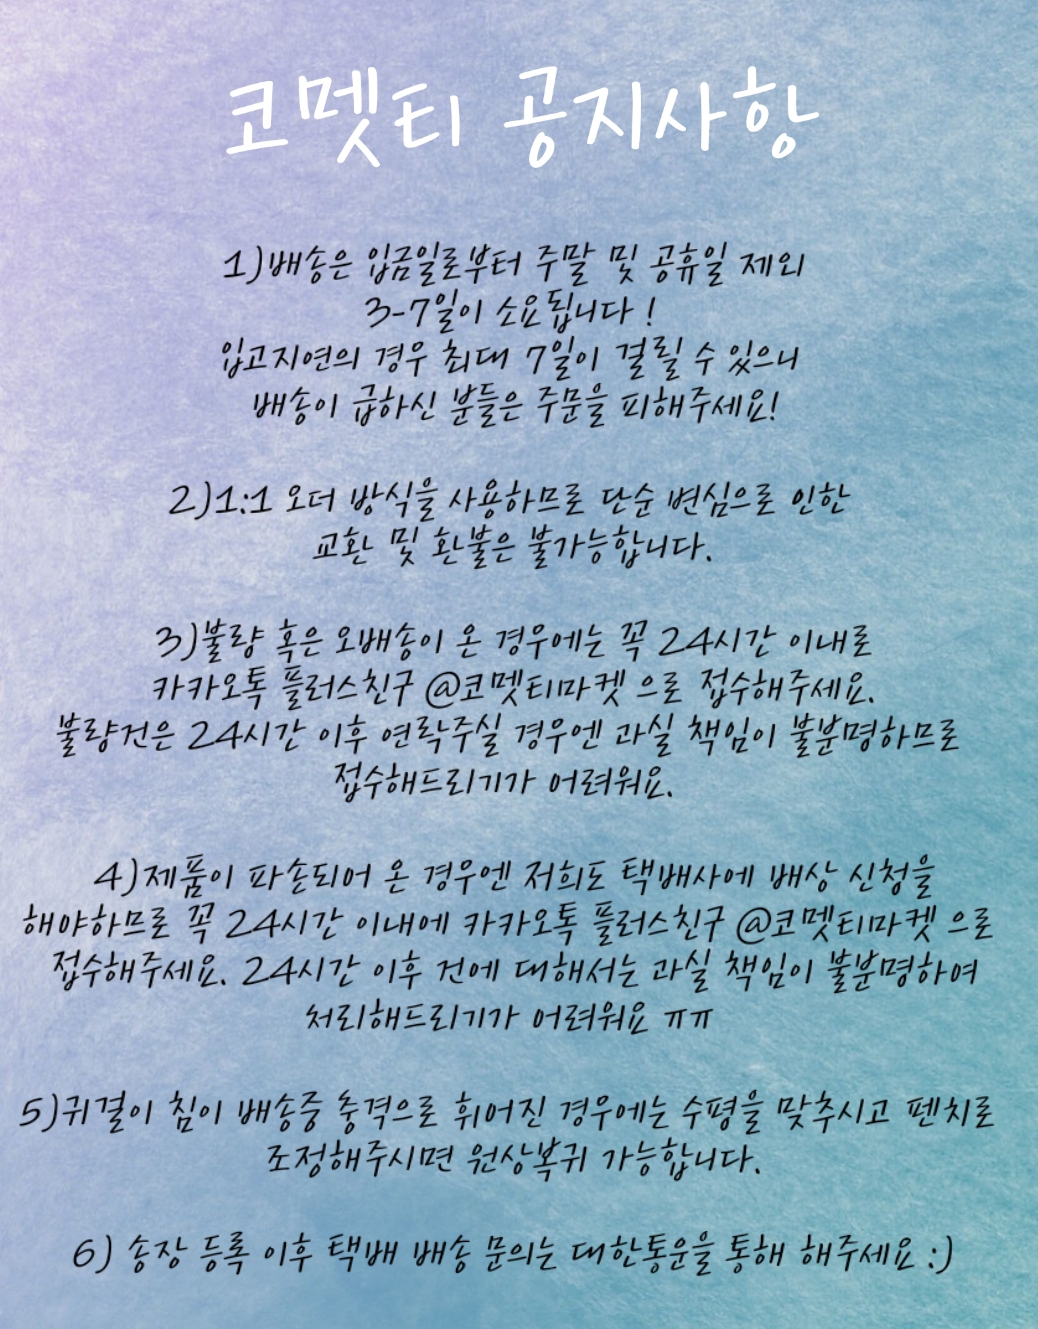 코멧티 공지사항
1)배송은 입금일로부터 주말 및 공휴일 제외
3-7일이 소요됩니다 !
입고지연의 경우 최대 7일이 걸릴 수 있으니
배송이 급하신 분들은 주문을 피해주세요!
2)1:1 오더 방식을 사용하므로 단순 변심으로 인한
교환 및 환불은 불가능합니다.
3)불량 혹은 오배송이 온 경우에는 꼭 24시간 이내로
카카오톡 플러스친구 @코멧티마켓 으로 접수해주세요.
불량건은 24시간 이후 연락주실 경우엔 과실 책임이 불분명하므로
접수해드리기가 어려워요.
4)제품이 파손되어 온 경우엔 저희도 택배사에 배상 신청을
해야하므로 꼭 24시간 이내에 카카오톡 플러스친구 @코멧티마켓 으로
접수해주세요. 24시간 이후 건에 대해서는 과실 책임이 불분명하여
처리해드리기가 어려워요 ㅠㅠ
5)귀걸이 침이 배송중 충격으로 휘어진 경우에는 수평을 맞추시고 펜치로
조정해주시면 원상복귀 가능합니다.
6) 송장 등록 이후 택배 배송 문의는 대한통운을 통해 해주세요 :)